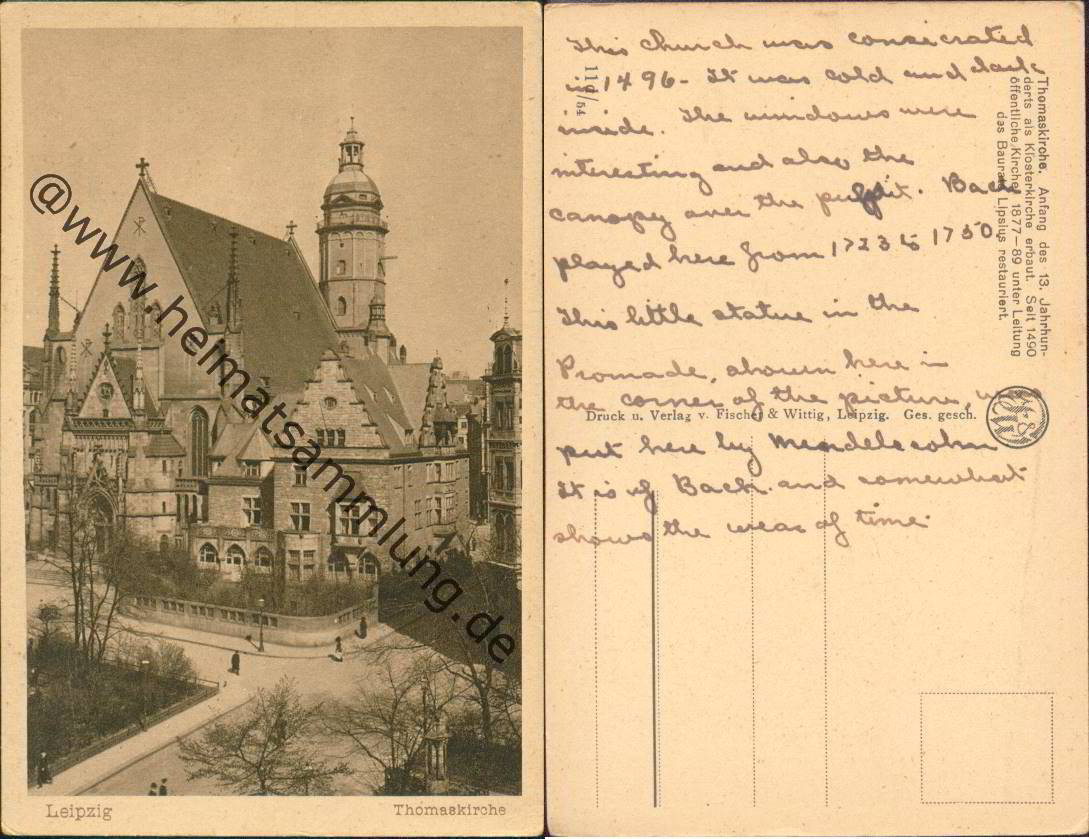 @www.heimatsammlung.de
Leipzig
Thomaskirche
This church was consecrated
in 1496 - It was cold and dark
inside. The windows were
interesting and also the
canopy over the pulpit. Bach
played here from 1723 to 1750
This little statue in the
Promade, shown here in
the corner of the picture, was
put here by Mendelssohn
It is of Bach and somewhat
shows the wear of time.
119/54
Thomaskirche. Anfang des 13. Jahrhun-
derts als Klosterkirche erbaut. Seit 1490
öffentliche Kirche. 1877—89 unter Leitung
das Baurat Lipsius restauriert.
Druck u. Verlag v. Fischer & Wittig, Leipzig. Ges. gesch.